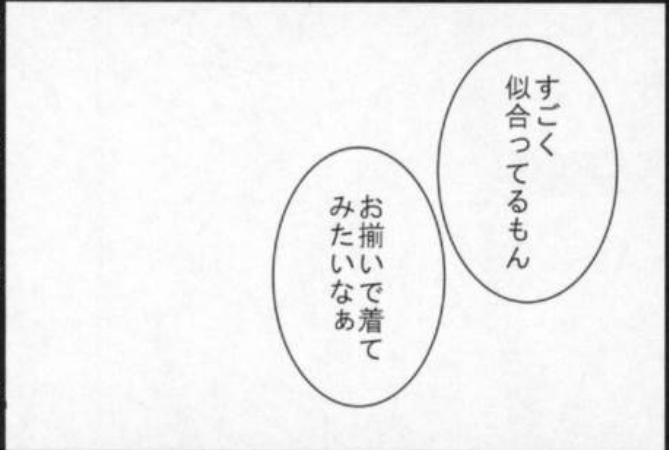 すごく
似合ってるもん
お揃いで着て
みたいなぁ